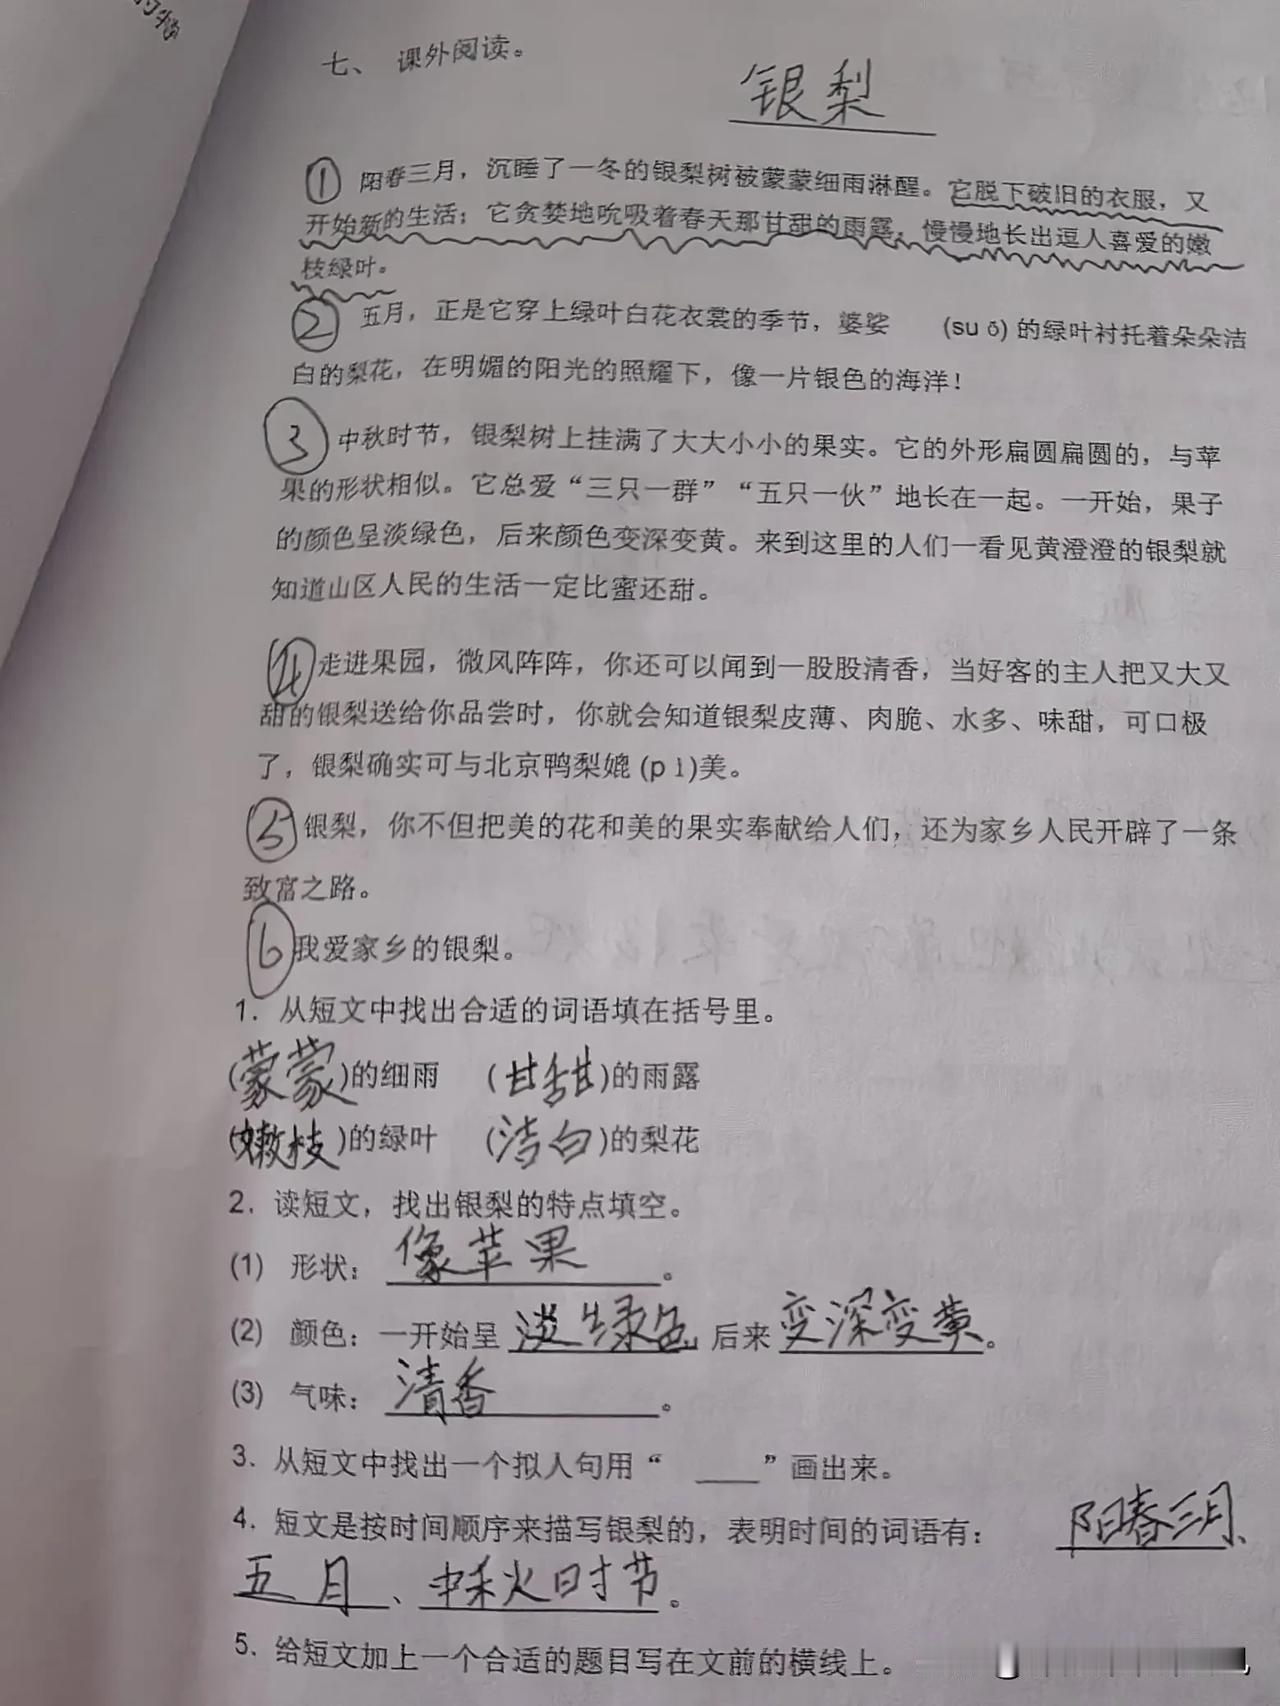 七、 课外阅读。
银梨
① 阳春三月，沉睡了一冬的银梨树被蒙蒙细雨淋醒。它脱下破旧的衣服，又
开始新的生活；它贪婪地吮吸着春天那甘甜的雨露，慢慢地长出逗人喜爱的嫩
枝绿叶。
② 五月，正是它穿上绿叶白花衣裳的季节，婆娑 (suō) 的绿叶衬托着朵朵洁
白的梨花，在明媚的阳光的照耀下，像一片银色的海洋！
③ 中秋时节，银梨树上挂满了大大小小的果实。它的外形扁圆扁圆的，与苹
果的形状相似。它总爱“三只一群”“五只一伙”地长在一起。一开始，果子
的颜色呈淡绿色，后来颜色变深变黄。来到这里的人们一看见黄澄澄的银梨就
知道山区人民的生活一定比蜜还甜。
④走进果园，微风阵阵，你还可以闻到一股股清香，当好客的主人把又大又
甜的银梨送给你品尝时，你就会知道银梨皮薄、肉脆、水多、味甜，可口极
了，银梨确实可与北京鸭梨媲 (pì)美。
⑤银梨，你不但把美的花和美的果实奉献给人们，还为家乡人民开辟了一条
致富之路。
⑥我爱家乡的银梨。
1. 从短文中找出合适的词语填在括号里。
(蒙蒙)的细雨 (甘甜)的雨露
(嫩枝)的绿叶 (洁白)的梨花
2. 读短文，找出银梨的特点填空。
(1) 形状：像苹果。
(2) 颜色：一开始呈淡绿色 后来变深变黄。
(3) 气味：清香。
3. 从短文中找出一个拟人句用“ ____ ”画出来。
4. 短文是按时间顺序来描写银梨的，表明时间的词语有： 阳春三月、
五月、中秋时节。
5. 给短文加上一个合适的题目写在文前的横线上。